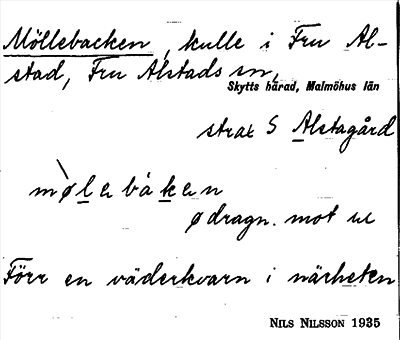 Möllebacken, kulle i Fru Al-
stad, Fru Alstads sn,
Skytts härad, Malmöhus län
strax S Alstagård
mø̀lebåken
ø dragn. mot u
Förr en väderkvarn i närheten
NILS NILSSON 1935